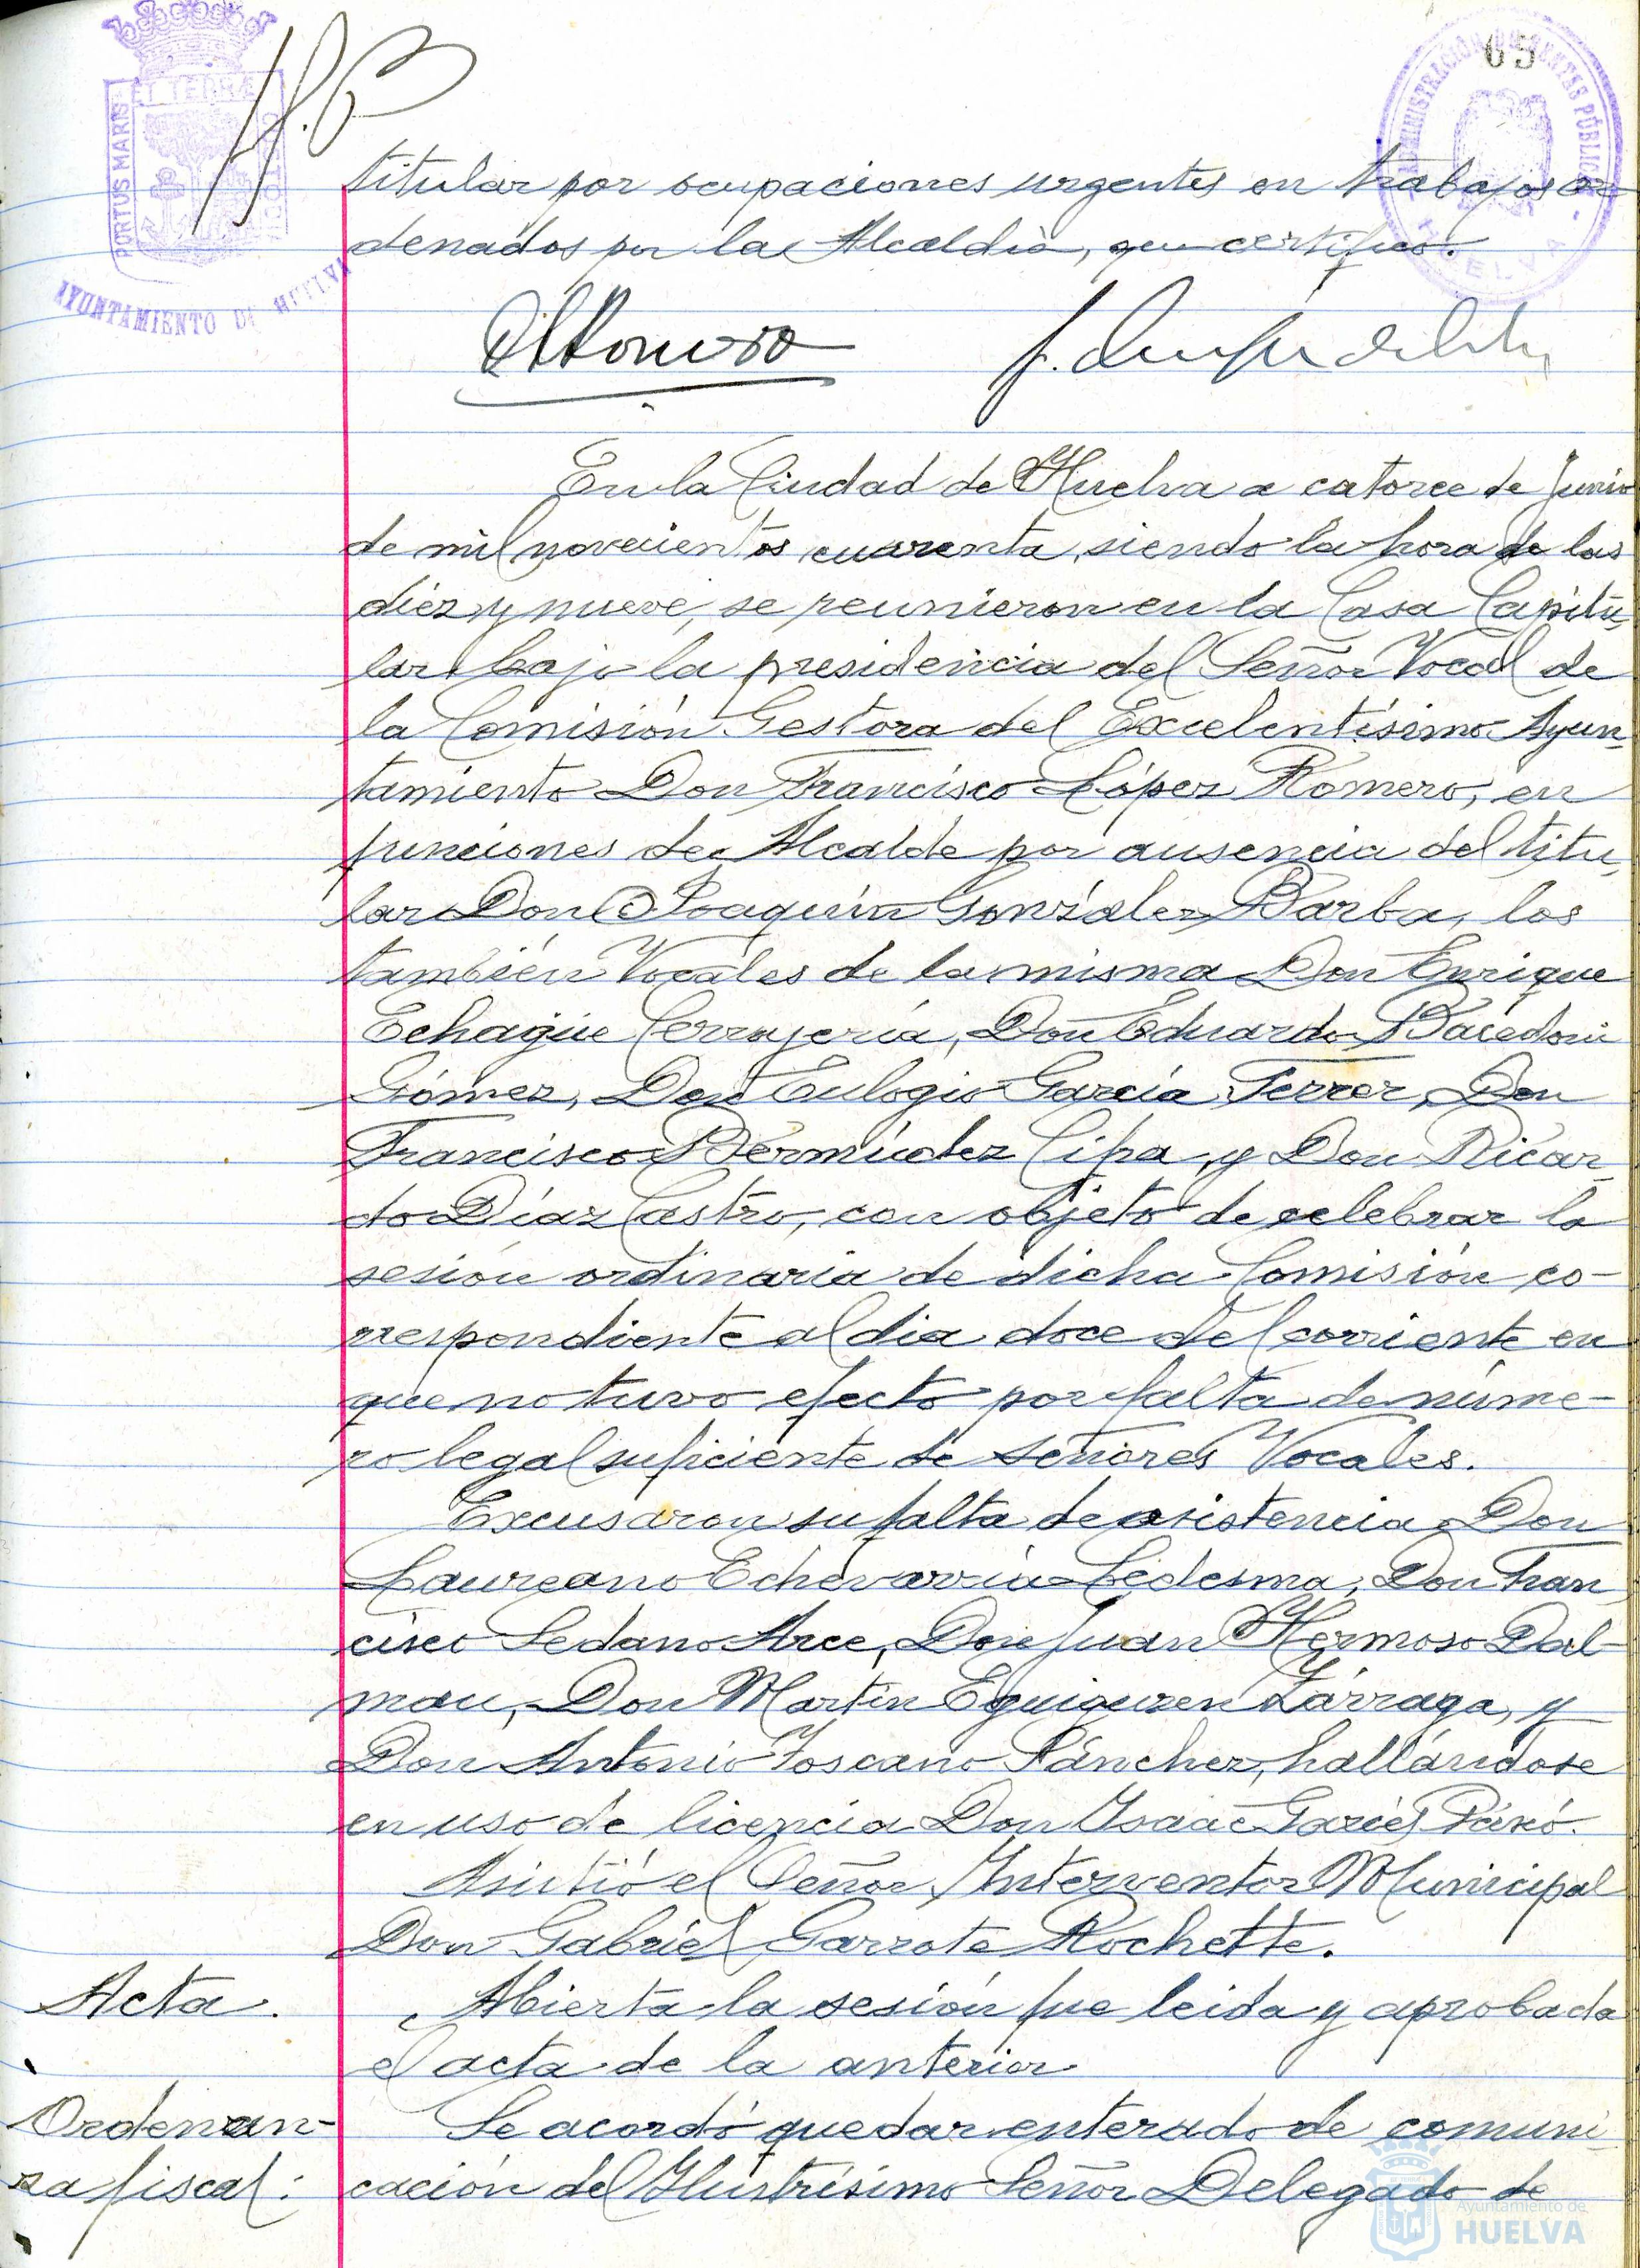 65
PORTUS MARIS ET TERRÆ CUSTODIA
AYUNTAMIENTO DE HUELVA
titular por ocupaciones urgentes en trabajos or
denados por la Alcaldia, que certifico.
En la Ciudad de Huelva a catorce de Junio
de mil novecientos cuarenta, siendo la hora de las
diez y nueve, se reunieron en la Casa Capitu-
lar bajo la presidencia del Señor Vocal de
la Comisión Gestora del Excelentísimo Ayun-
tamiento Don Francisco López Romero, en
funciones de Alcalde por ausencia del titu-
lar Don Joaquín González Barba, los
también Vocales de la misma Don Enrique
Echagüe Cerrajería, Don Eduardo Bacedoni
Gómez, Don Eulogio García Ferrer, Don
Francisco Bermúdez Cipa y Don Ricar-
do Díaz Castro, con objeto de celebrar la
sesión ordinaria de dicha Comisión co-
rrespondiente al dia doce del corriente en
que no tuvo efecto por falta de núme-
ro legal suficiente de señores Vocales.
Excusaron su falta de asistencia Don
Laureano Echevarria Ledesma, Don Fran
cisco Sedano Arce, Don Juan Hermoso Dal-
mau, Don Martín Eguiguren Lárraga, y
Don Antonio Toscano Sánchez, hallándose
en uso de licencia Don Ysaac
Asistió el Señor Interventor Municipal
Don Gabriel Garrote Rochette.
Acta. Abierta la sesión fue leida y aprobada
el acta de la anterior
Ordenan- Se acordó quedar enterado de comuni-
za fiscal: cación del Ylustrísimo Señor Delegado de
Ayuntamiento de
HUELVA